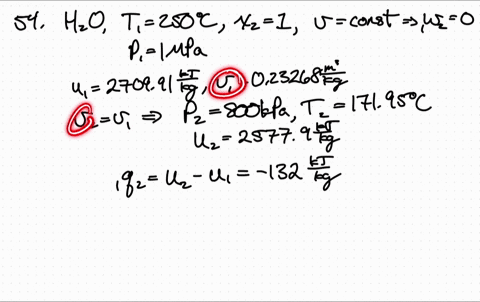 54. H₂O, T₁=250°C, x₂=1, v=const ⇒ ₁w₂=0
P₁=1MPa
u₁=2709.91 kJ/kg, v₁ 0.23268 m³/kg
v₂=v₁ ⇒ P₂=800kPa, T₂=171.95°C
u₂=2577.9 kJ/kg
₁q₂=u₂-u₁=-132 kJ/kg